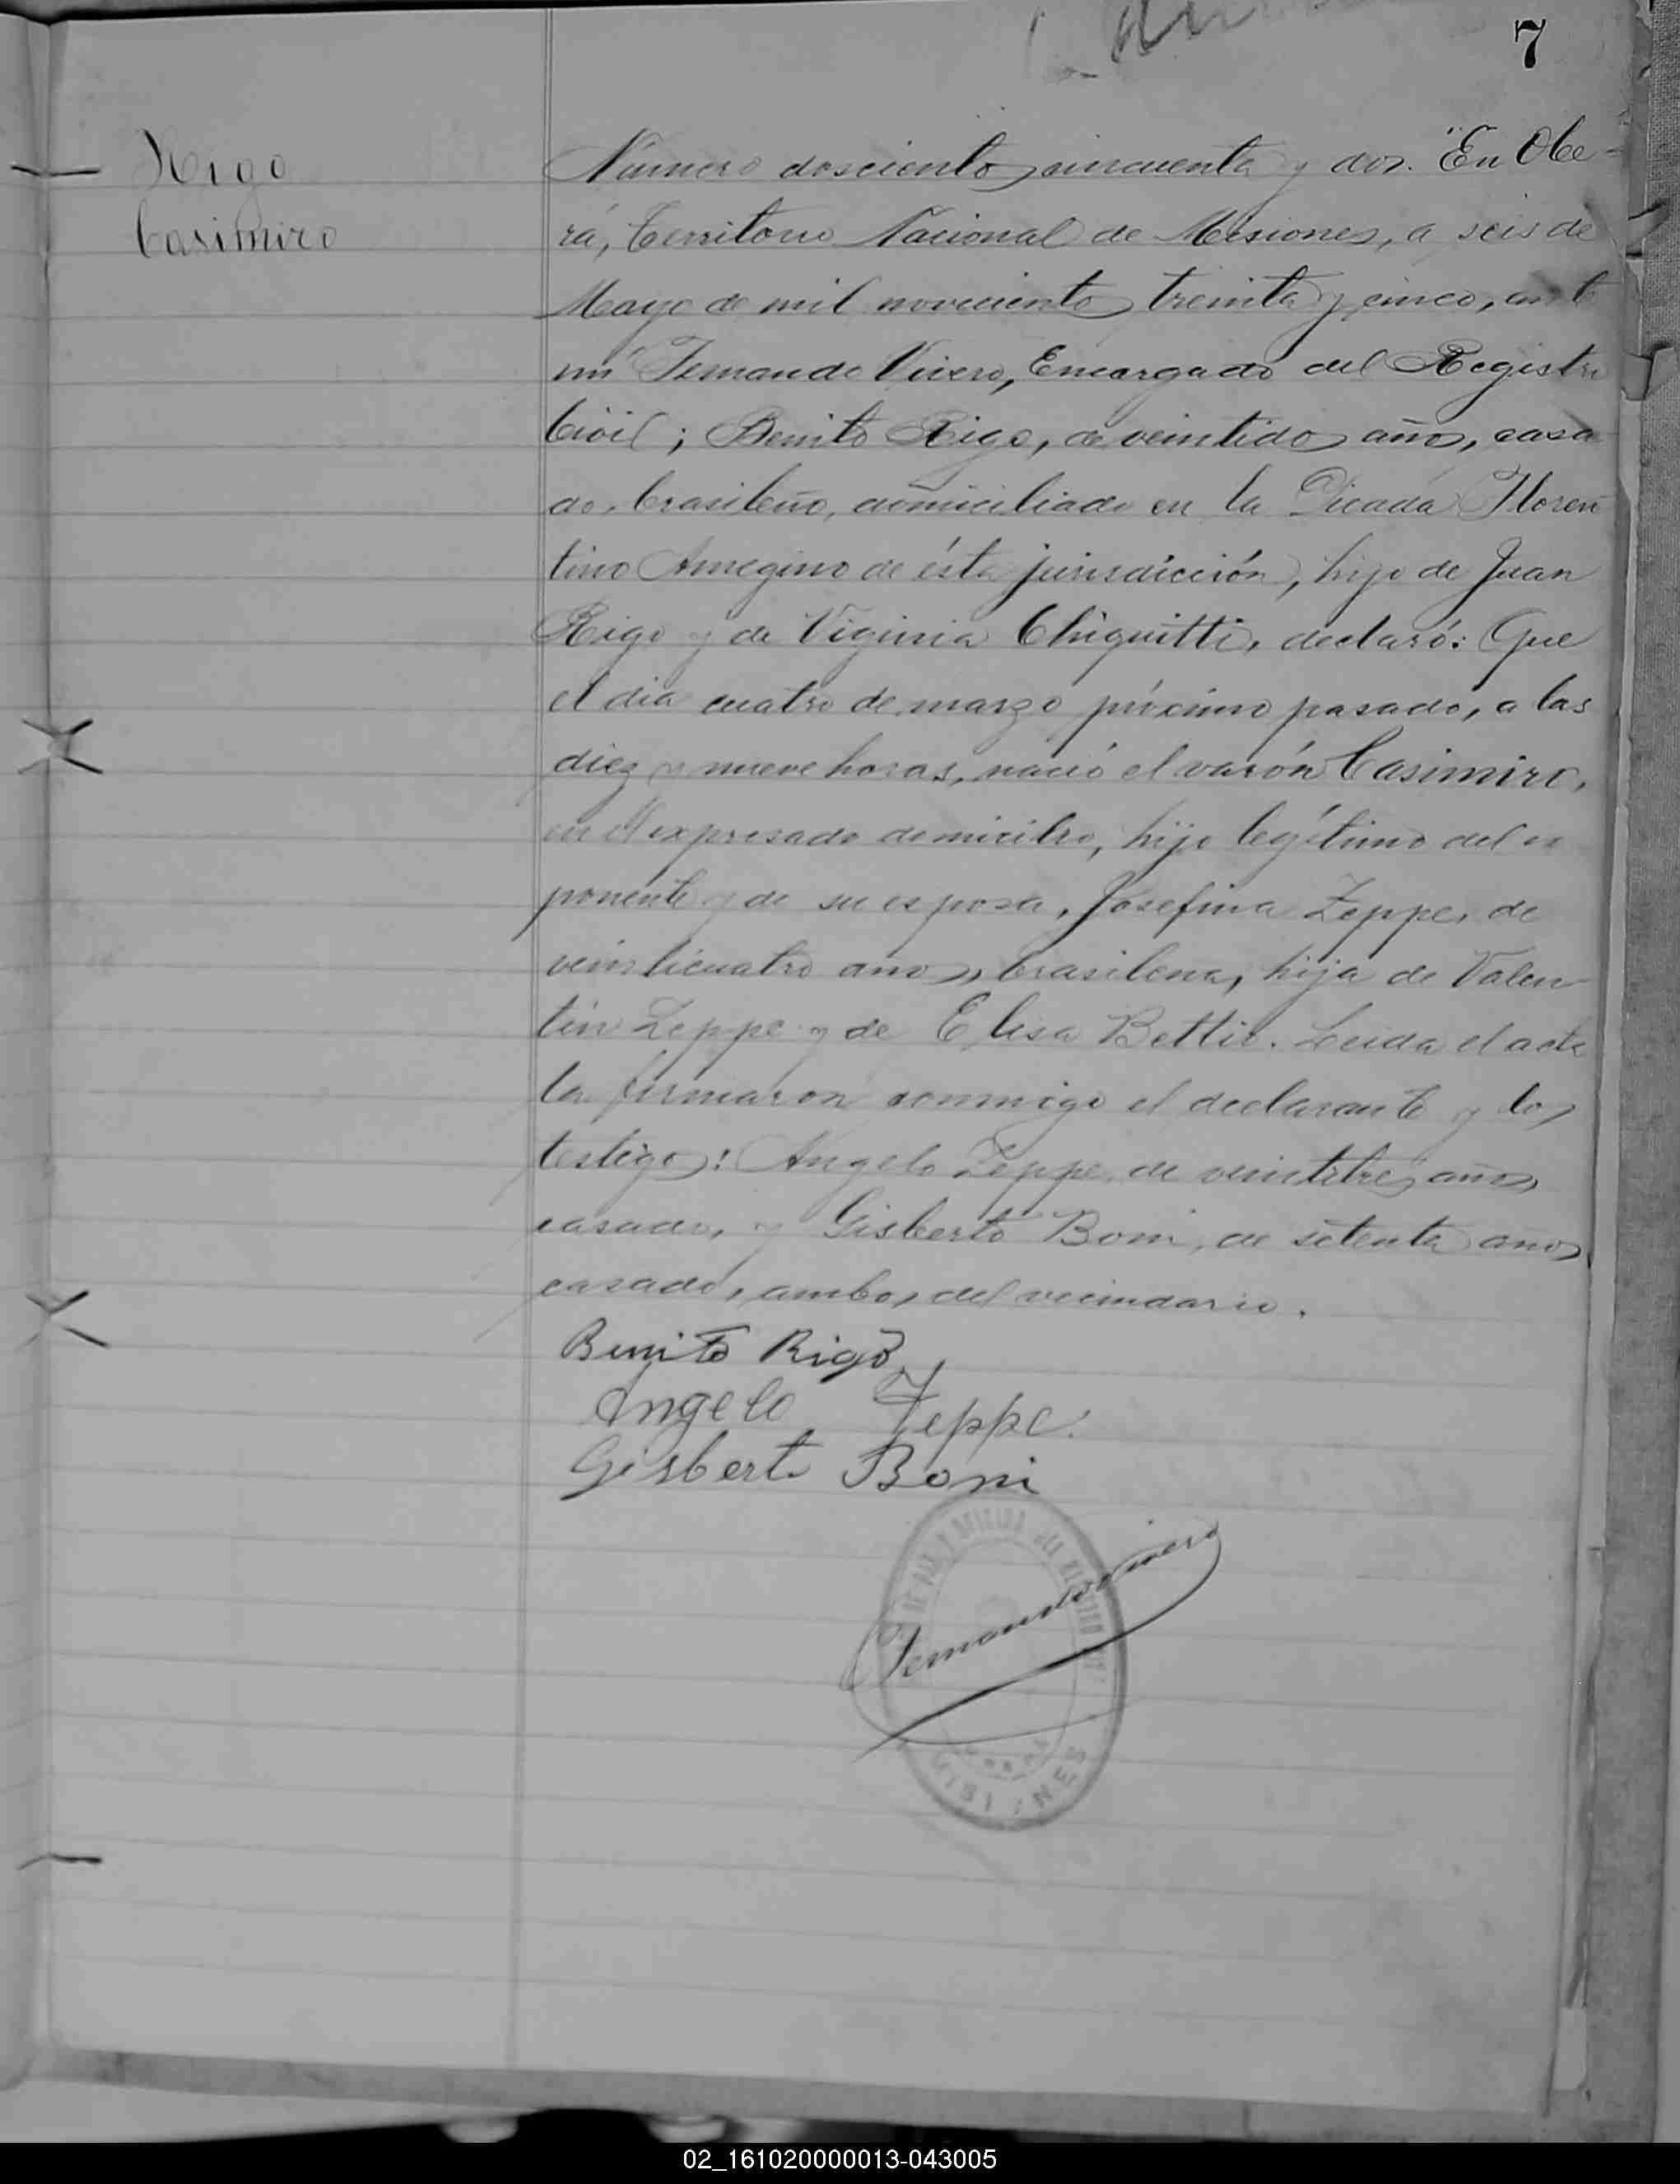 7
Rigo
Casimiro
Número doscientos cincuenta y dos. "En Obe-
rá, Territorio Nacional de Misiones, a seis de
Mayo de mil novecientos treinta y cinco, ante
mi Fernando Vivero, Encargado del Registro
Civil; Benito Rigo, de veintidos años, casa
do, brasileño, domiciliado en la Picada Floren
tino Amegino de ésta jurisdicción, hijo de Juan
Rigo y de Viginia Chiquitti, declaró: Que
el dia cuatro de marzo próximo pasado, a las
diez y nueve horas, nació el varón Casimiro,
en el expresado domicilio, hijo legítimo del ex
ponente y de su esposa, Josefina Zeppe, de
veinticuatro años, brasilena, hija de Valen-
tin Zeppe y de Elisa Bettio. Leida el acta
la firmaron conmigo el declarante y los
testigos: Angelo Zeppe, de veintitres años,
casado, y Gisberto Boni, de setenta años,
casado, ambos del vecindario.
Benito Rigo
Angelo Zeppe.
Gisberto Boni
Fernando Vivero
DE PAZ Y OFICINA DEL REGISTRO
MISIONES
02_161020000013-043005